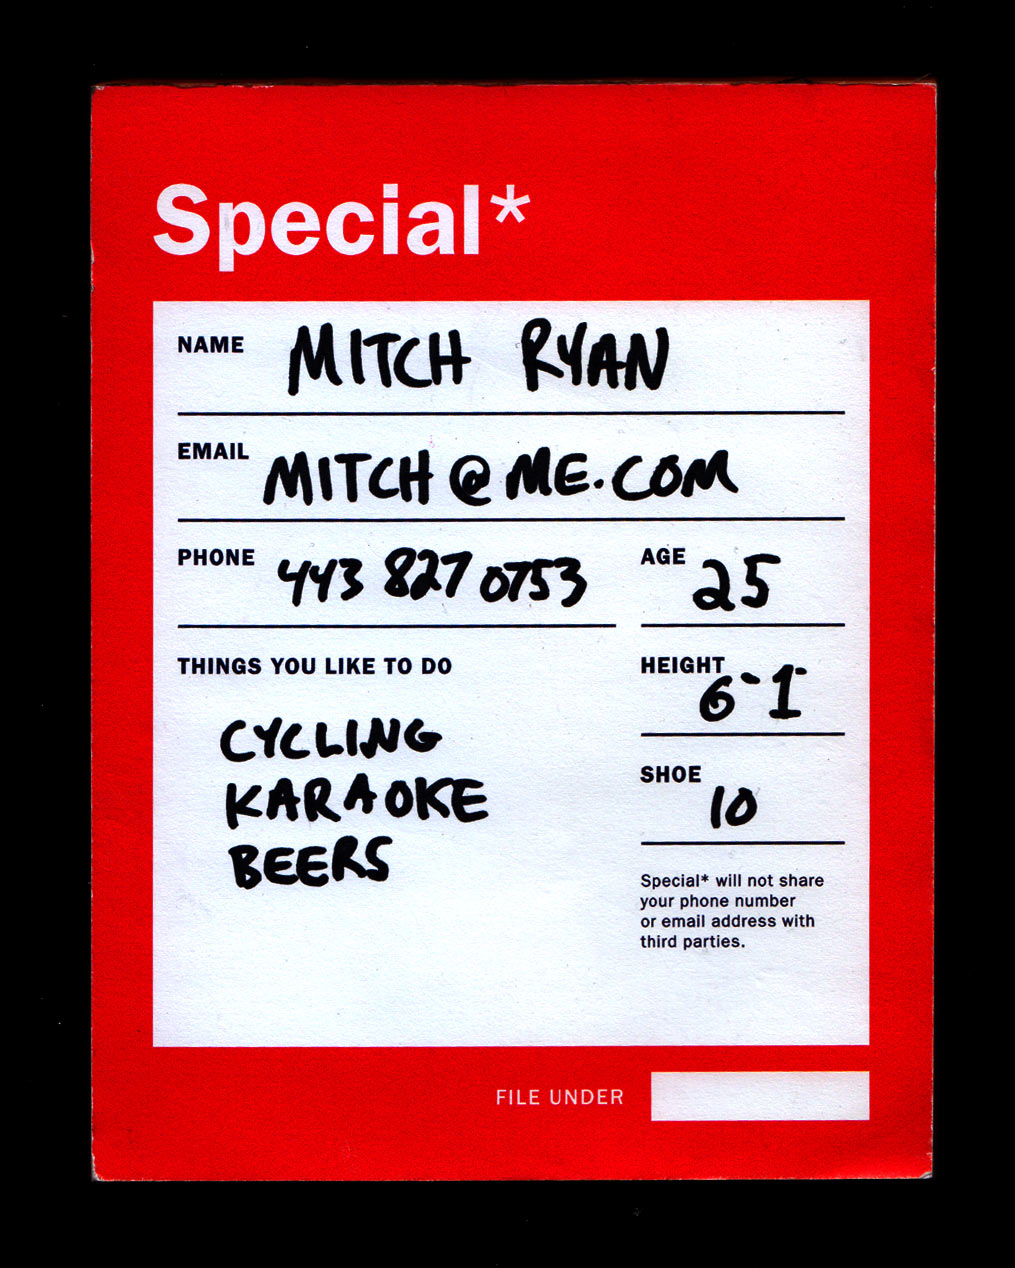 Special*
NAME MITCH RYAN
EMAIL MITCH@ME.COM
PHONE 443 827 0753
AGE 25
THINGS YOU LIKE TO DO
CYCLING
KARAOKE
BEERS
HEIGHT 6-1
SHOE 10
Special* will not share
your phone number
or email address with
third parties.
FILE UNDER